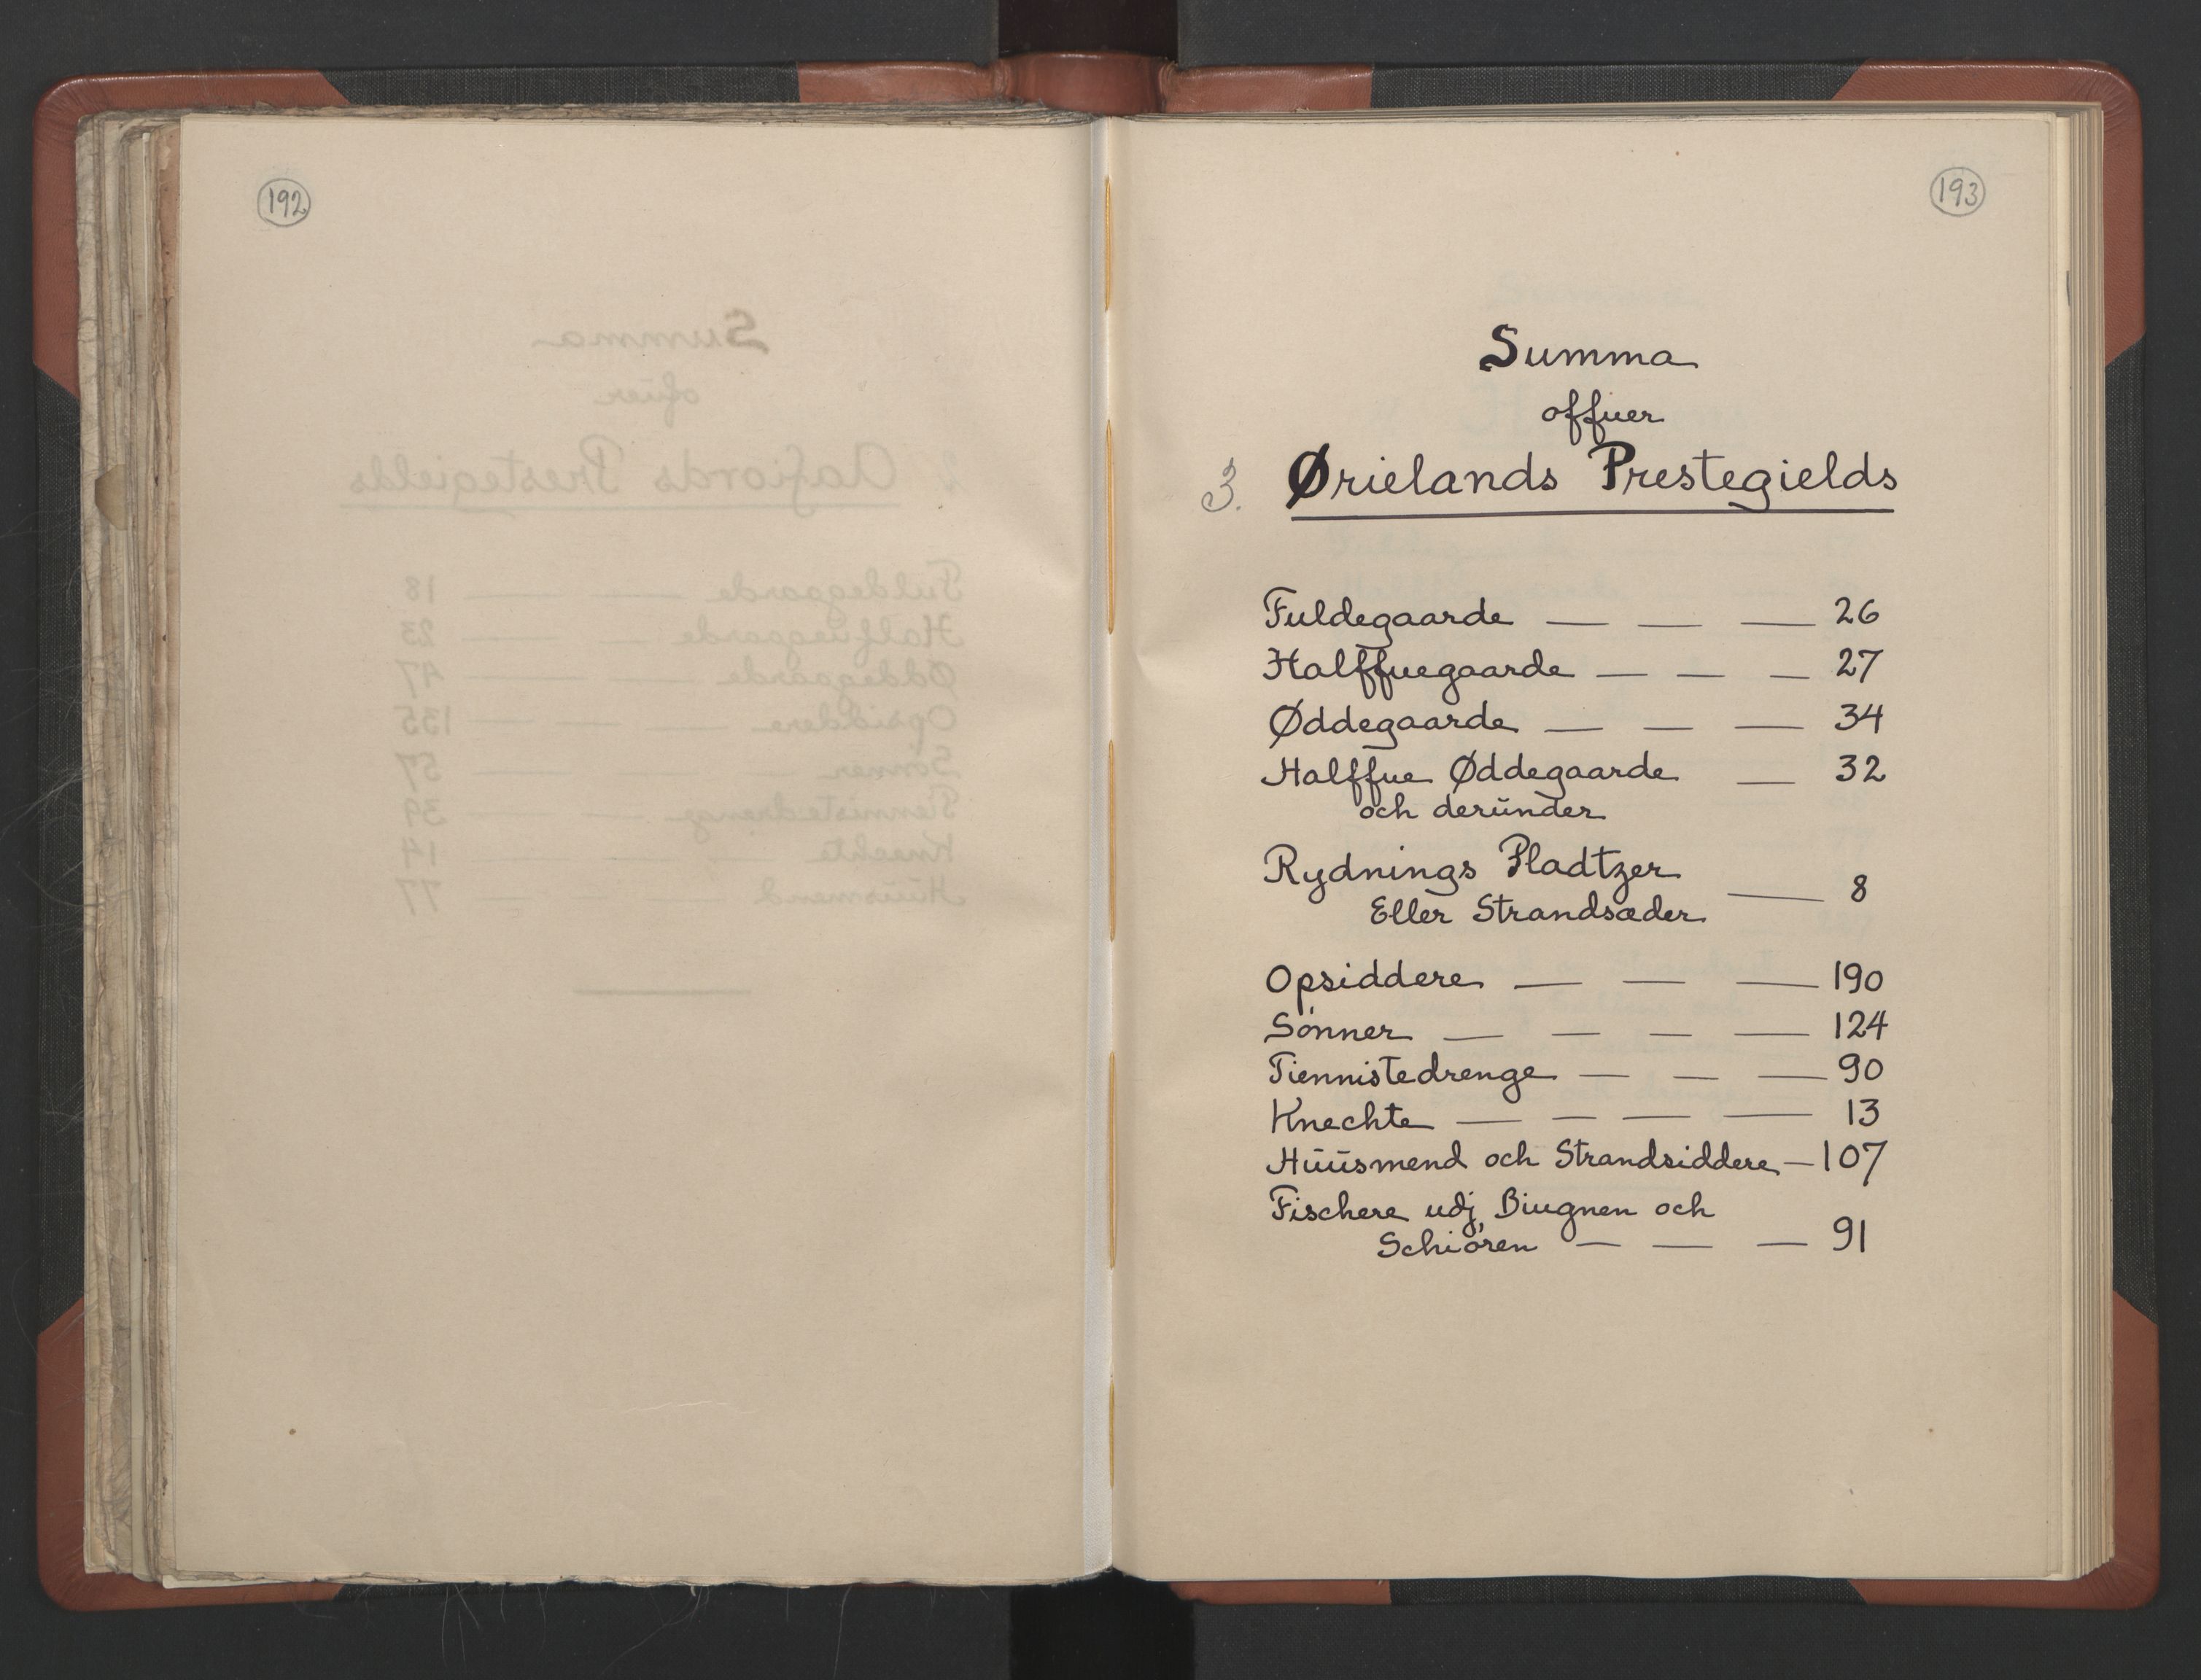 192
193
Summa
offuer
3. Ørielands Prestegields
Fuldegaarde — — — 26
Halffuegaarde — — — 27
Øddegaarde — — — 34
Halffue Øddegaarde — 32
och derŭnder
Rydnings Pladtzer
Eller Strandsæder — 8
Opsiddere — — — 190
Sónner — — — — 124
Tiennistedrenge — — — 90
Knechte — — — — 13
Hŭŭsmend och Strandsiddere — 107
Fischere udj Biugnen och
Schióren — — — 91